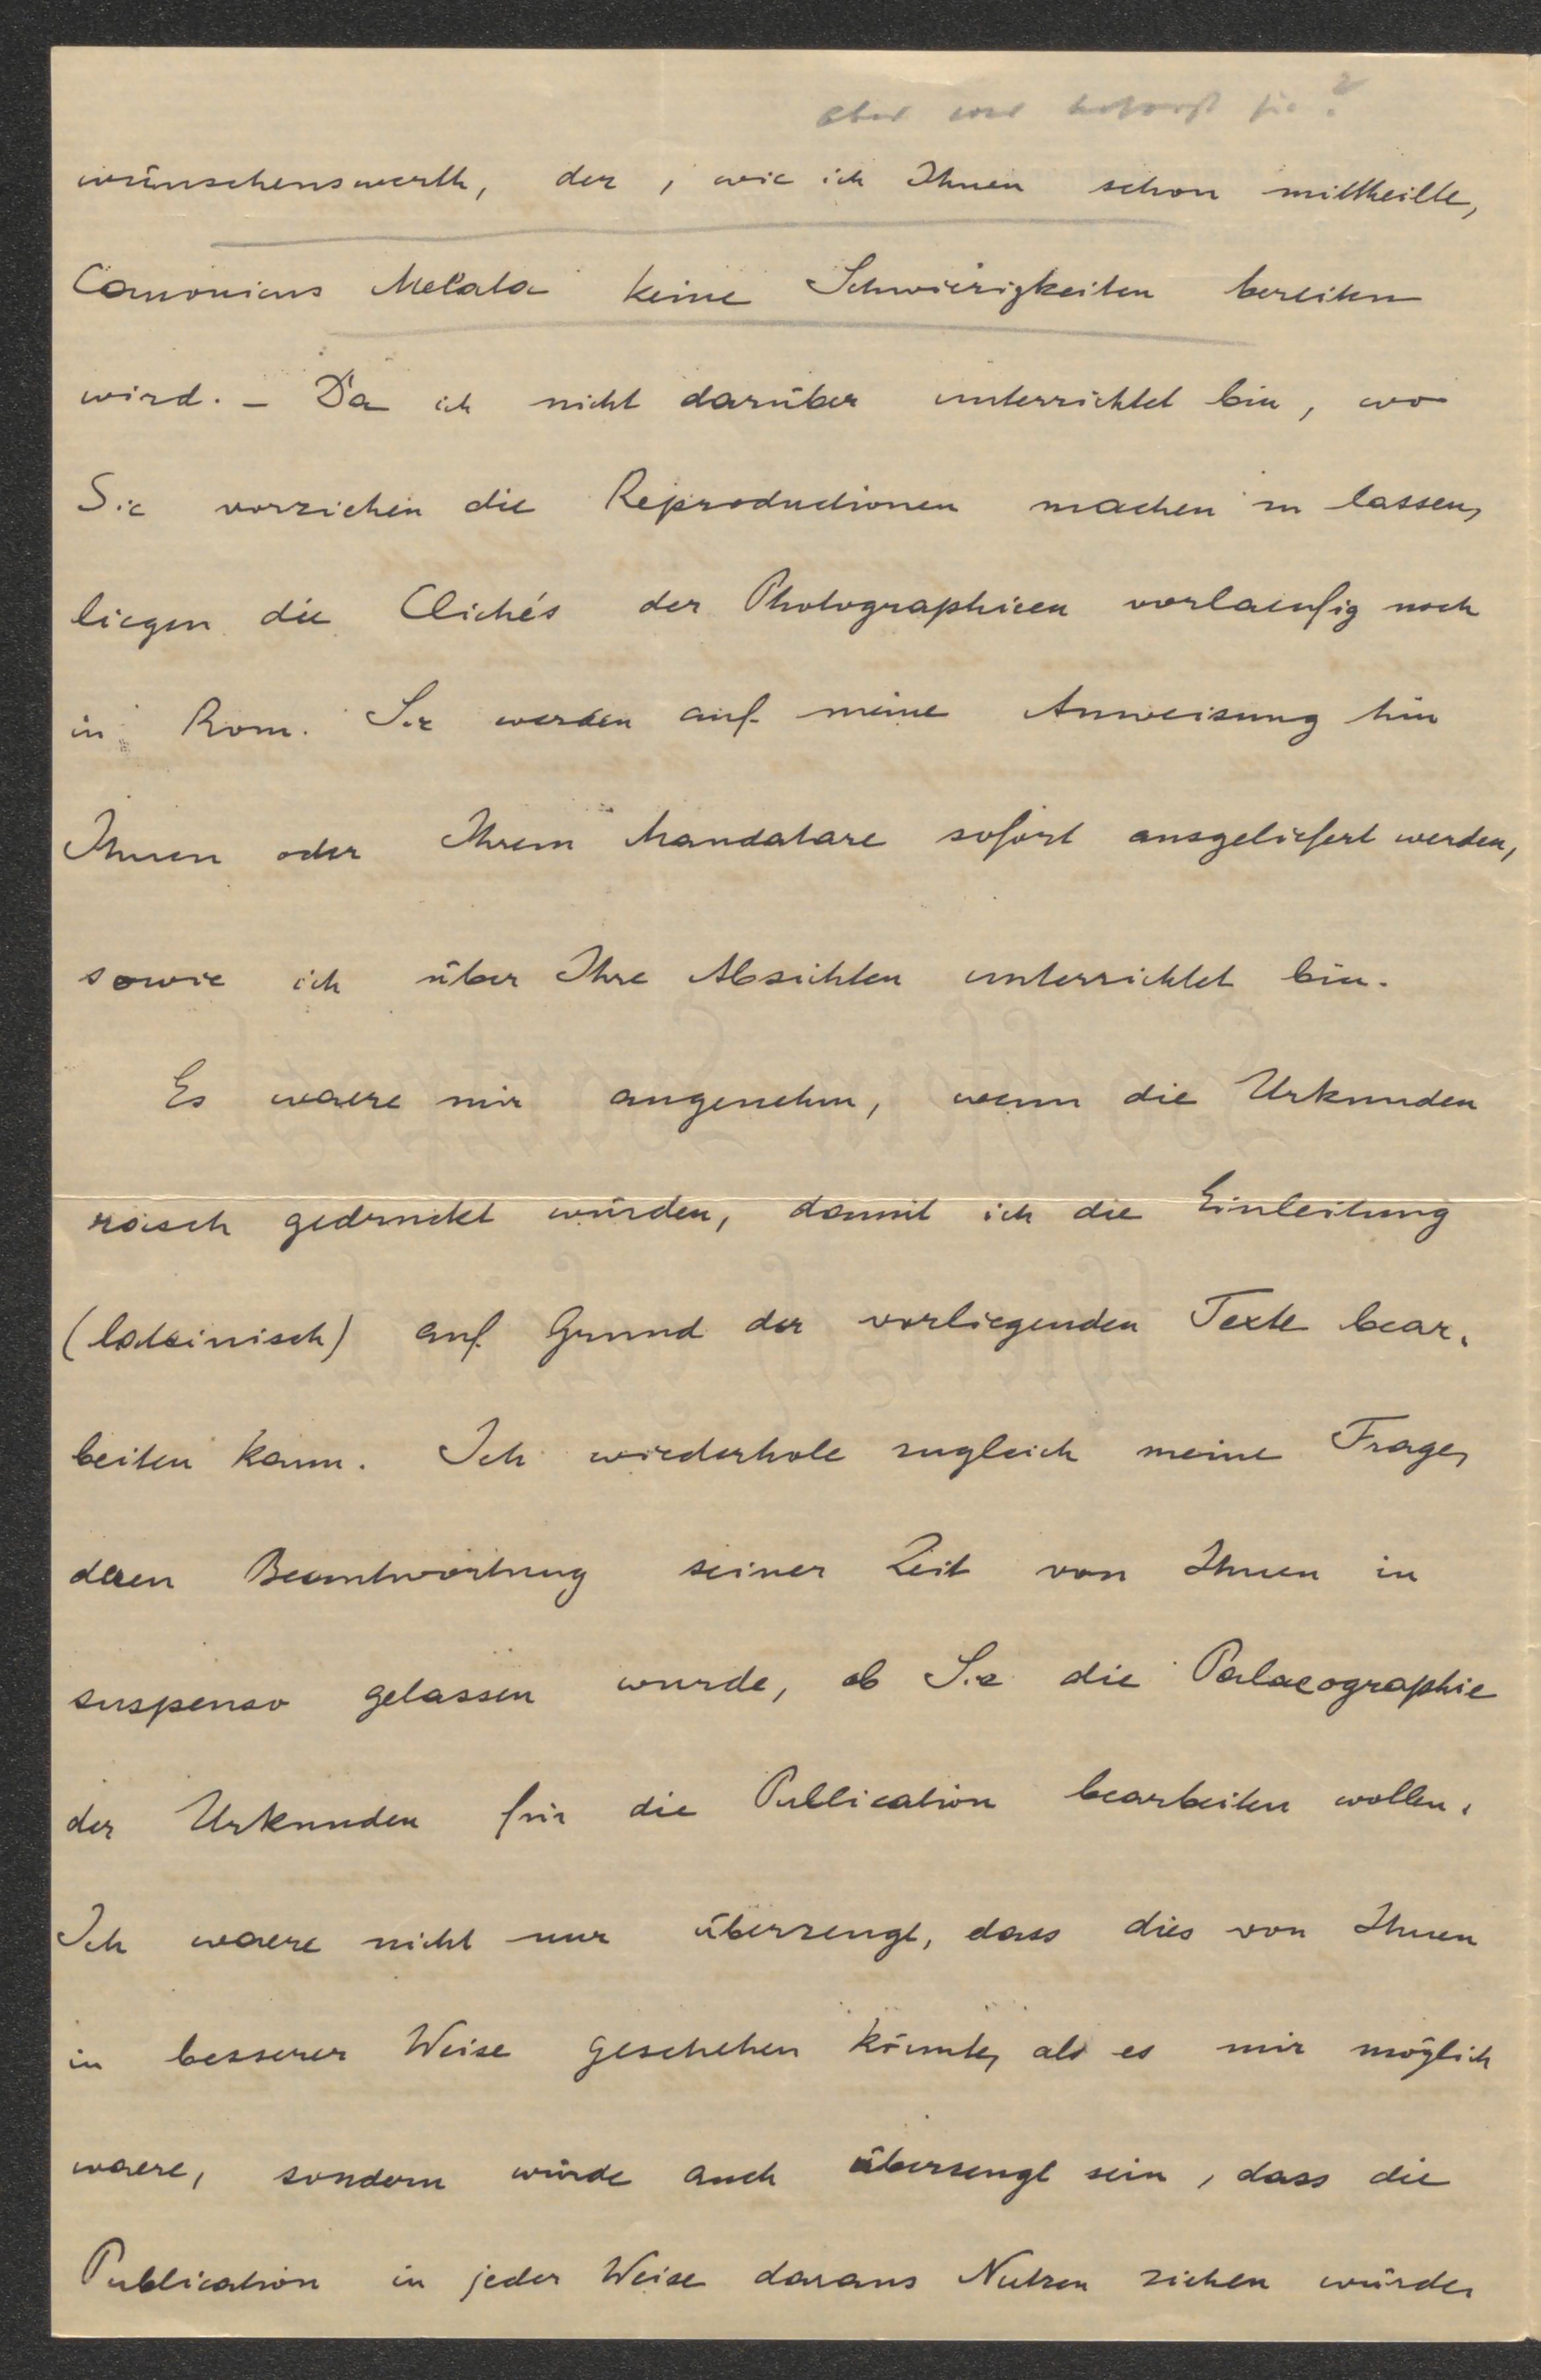 aber wer besorgt sie?
wünschenswerth, der, wie ich Ihnen schon mittheilte,
Canonicus Melata keine Schwierigkeiten bereiten
wird. – Da ich nicht darüber unterrichtet bin, wo
Sie vorziehen die Reproductionen machen zu lassen,
liegen die Clichés der Photographieen vorlaeufig noch
in Rom. Sie werden auf meine Anweisung hin
Ihnen oder Ihrem Mandatare sofort ausgeliefert werden,
sowie ich über Ihre Absichten unterrichtet bin.
Es waere mir angenehm, wenn die Urkunden
rasch gedruckt würden, damit ich die Einleitung
(lateinisch) auf Grund der vorliegenden Texte bear-
beiten kann. Ich wiederhole zugleich meine Frage,
deren Beantwortung seiner Zeit von Ihnen in
suspenso gelassen wurde, ob Sie die Palaeographie
der Urkunden für die Publication bearbeiten wollen.
Ich waere nicht nur überzeugt, dass dies von Ihnen
in besserer Weise geschehen könnte, als es mir möglich
waere, sondern würde auch überzeugt sein, dass die
Publication in jeder Weise daraus Nutzen ziehen würde.